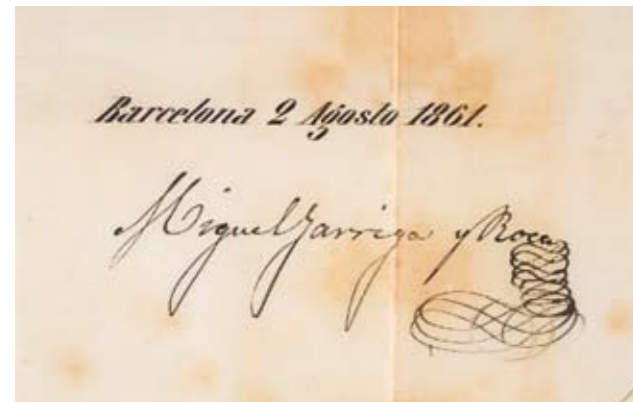 Barcelona 2 Agosto 1861.
Miguel Garriga y Roca